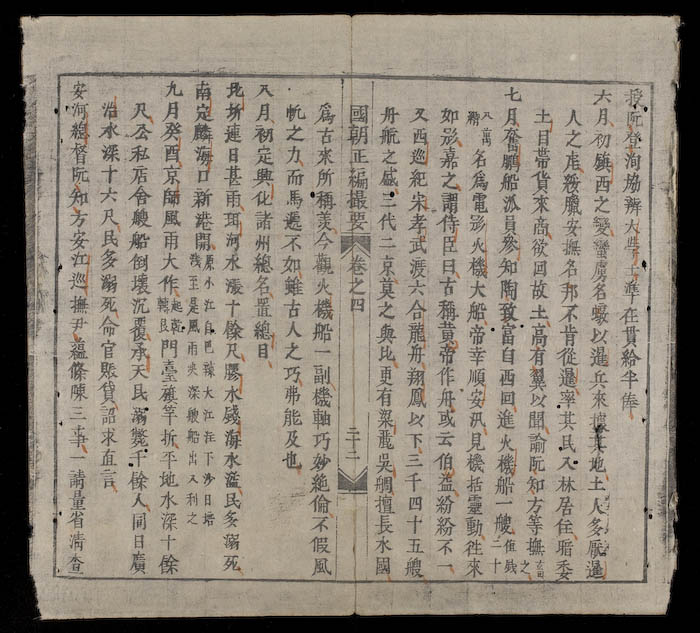 授阮登洵協辦大學士準在貫給半俸
六月初鎮西之變蠻震名蟝以暹兵來據其地土人多厭暹
人之虐綏臘安撫名邦不肯從暹率其民入林居住琣委
土目帶貨來商欲回故土高有翼以聞諭阮知方等撫之
七月奮鵬船派員參知陶致富自西回進火機船一艘值錢二十
八萬緡名為電影火機大船帝幸順安汛見機括靈動往來
如影嘉之謂侍臣曰古稱黃帝作舟或云伯益紛紛不一
又西巡紀宋孝武渡六合龍舟翔鳳以下三千四十五艘
舟航之盛三代二京莫之與比更有梁𪚥吳舸擅長水國
國朝正編撮要 卷之四 三十二
為古來所稱羡今觀火機船一副機軸巧妙絶倫不假風
帆之力而馬遞不如雖古人之巧弗能及也
八月初定興化諸州總名置總目
北圻連日甚雨珥河水漲十餘尺膠水殘海水溢民多溺死
南定麟海口新港開原小江自巴辣大江注下沙日培淺至是風雨夾深艘船出入利之
九月癸酉京師風雨大作起巽轉艮門臺旗竿折平地水深十餘
尺公私店舍艘船倒壞沉覆承天民溺斃千餘人同日廣
治水深十六尺民多溺死命官賑貸詔求直言
安河總督阮知方安江巡撫尹蘊條陳三事一請量省清查